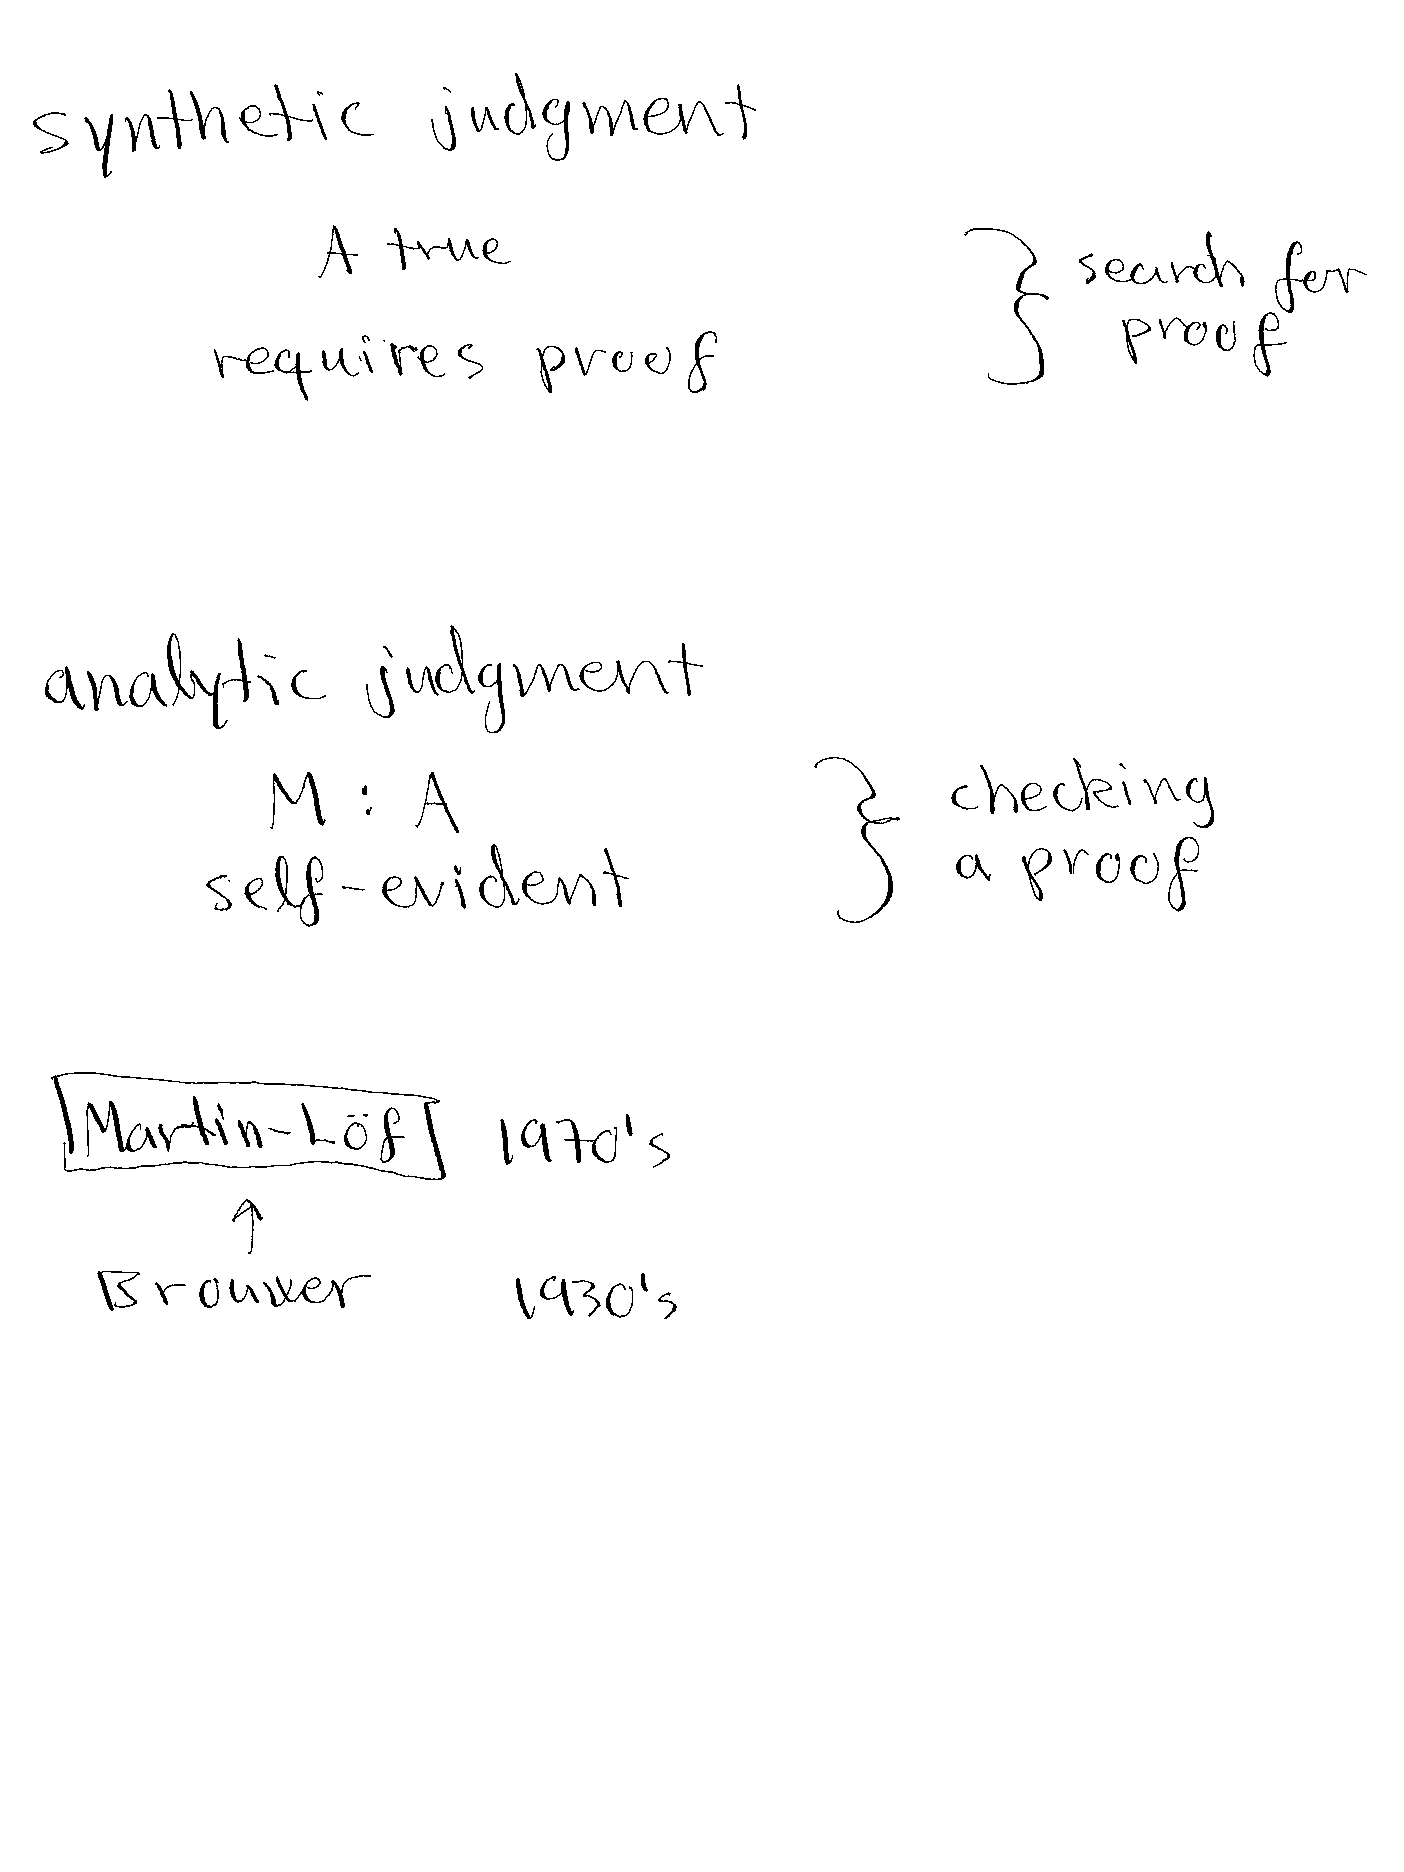 synthetic judgment
A true
requires proof
} search for
proof
analytic judgment
M : A
self-evident
} checking
a proof
Martin-Löf 1970's
↑
Brouwer 1930's